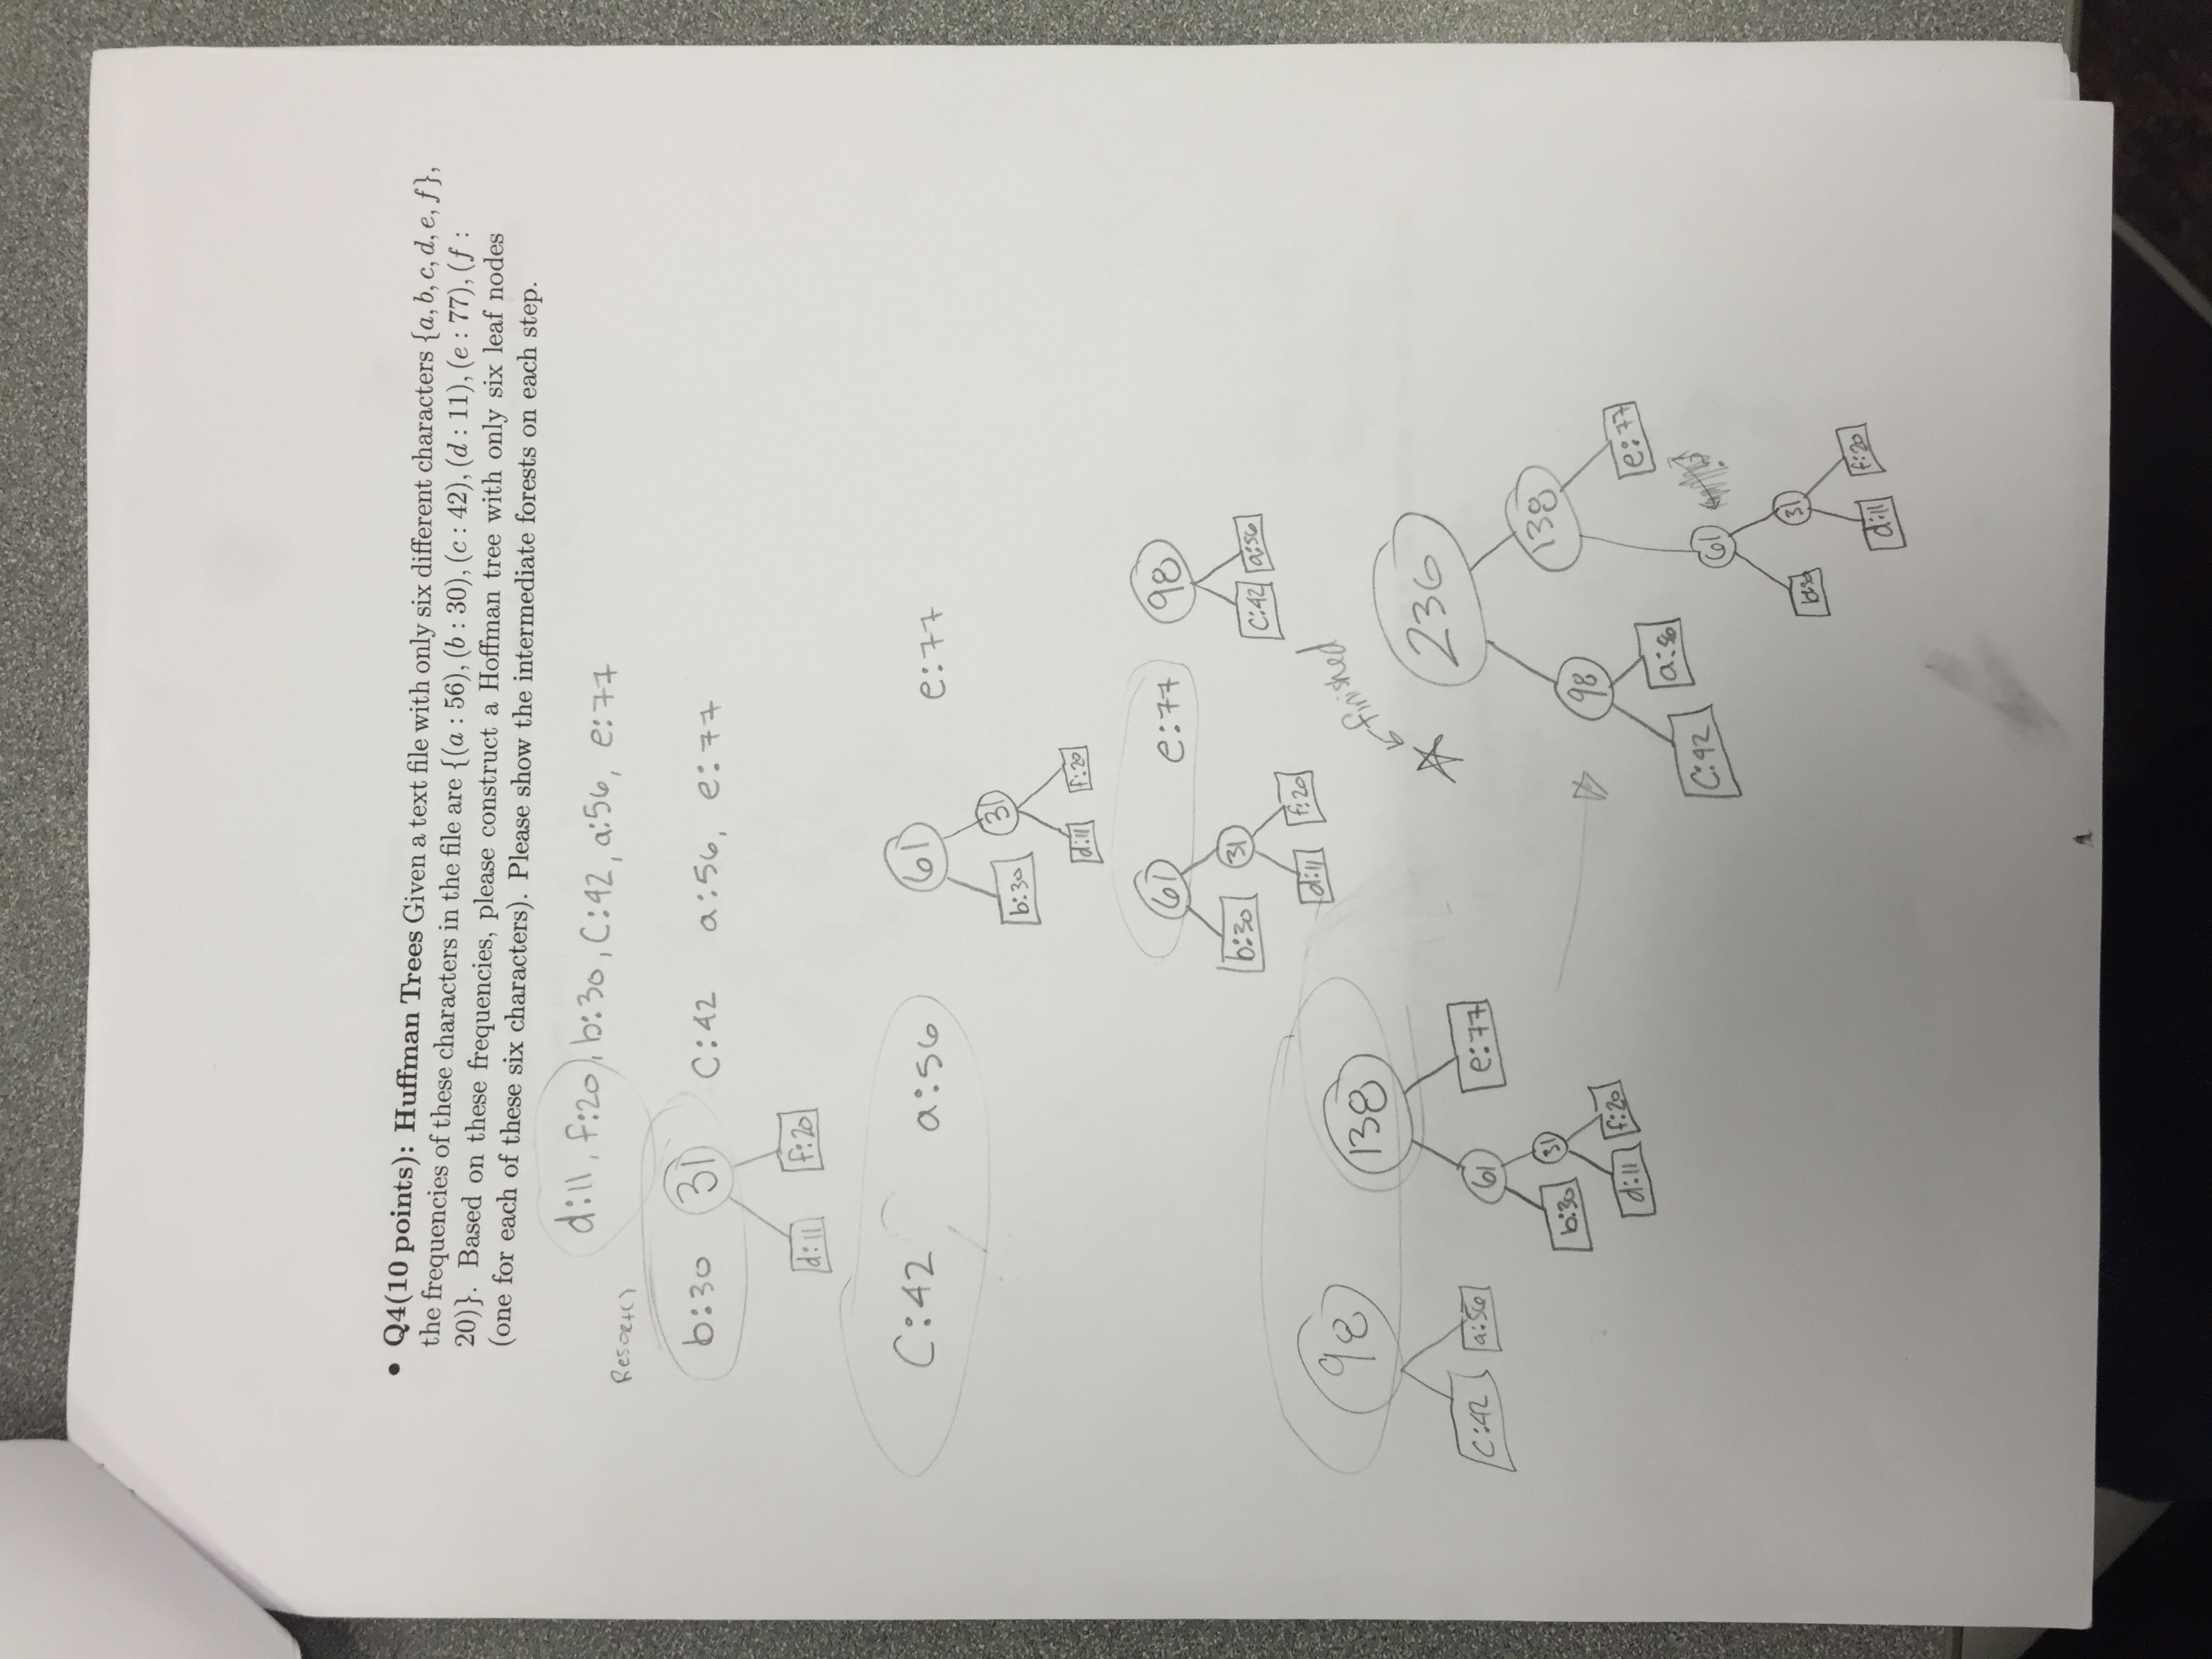 • Q4(10 points): Huffman Trees Given a text file with only six different characters {a, b, c, d, e, f},
the frequencies of these characters in the file are {(a : 56), (b : 30), (c : 42), (d : 11), (e : 77), (f :
20)}. Based on these frequencies, please construct a Hoffman tree with only six leaf nodes
(one for each of these six characters). Please show the intermediate forests on each step.
d:11, f:20, b:30, C:42, a:56, e:77
Resort()
b:30 31 C:42 a:56, e:77
d:11 f:20
C:42 a:56 61 e:77
b:30 31
d:11 f:20
61 e:77 98
b:30 31 C:42 a:56
d:11 f:20
98 138
C:42 a:56 61 e:77
b:30 31
d:11 f:20
finished
236
98 138
C:42 a:56 61 e:77
b:30 31
d:11 f:20